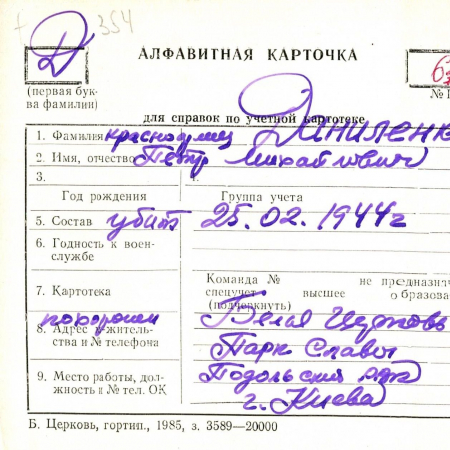 354
Д
АЛФАВИТНАЯ КАРТОЧКА
6
(первая бук-
ва фамилии)
№
для справок по учетной картотеке
1. Фамилия красноармеец Даниленк
2. Имя, отчество Пётр Михайлович
3.
4.
Год рождения
Группа учета
5. Состав убит 25.02.1944г
6. Годность к воен-
службе
7. Картотека
Команда № не предназнач
спецучет высшее образова
(подчеркнуть)
похоронен Белая Церковь
8. Адрес жительства и № телефона
Парк Славы
9. Место работы, дол-
жность и № тел. ОК
Подольский
г. Киева
Б. Церковь, гортип., 1985, з. 3589—20000